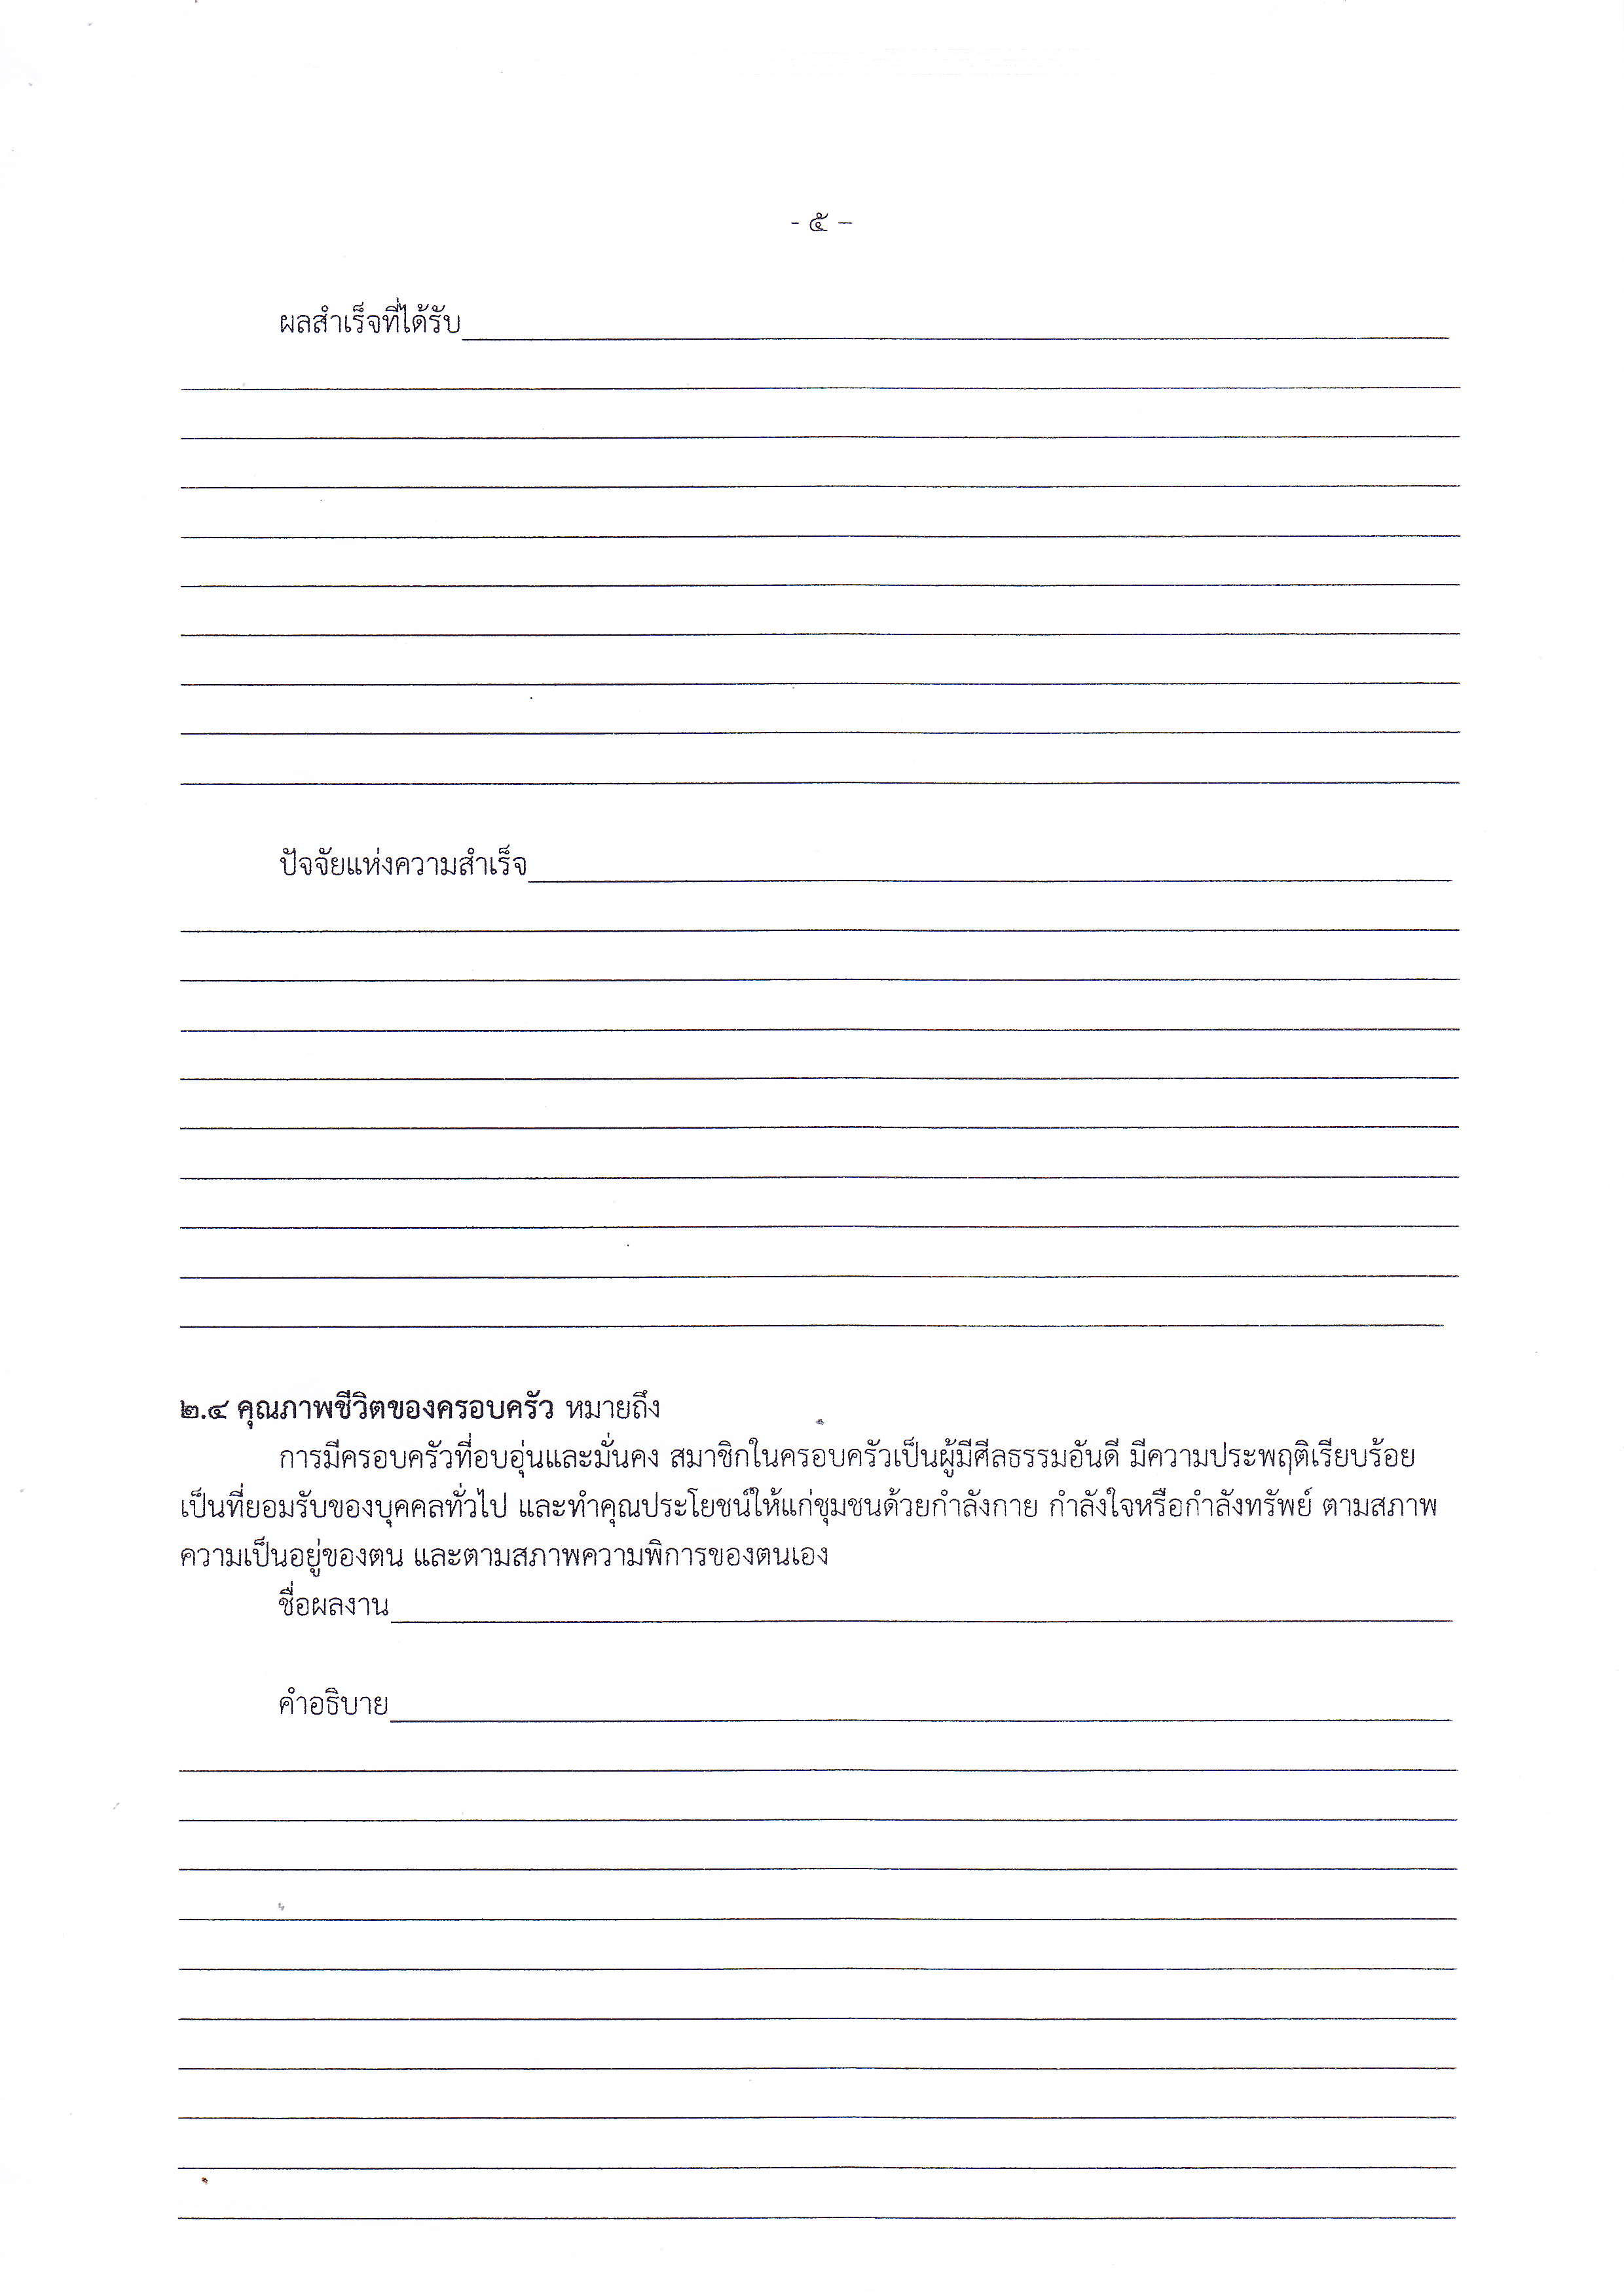 - ๕ –
ผลสำเร็จที่ได้รับ
ปัจจัยแห่งความสำเร็จ
๒.๔ คุณภาพชีวิตของครอบครัว หมายถึง
การมีครอบครัวที่อบอุ่นและมั่นคง สมาชิกในครอบครัวเป็นผู้มีศีลธรรมอันดี มีความประพฤติเรียบร้อย
เป็นที่ยอมรับของบุคคลทั่วไป และทำคุณประโยชน์ให้แก่ชุมชนด้วยกำลังกาย กำลังใจหรือกำลังทรัพย์ ตามสภาพ
ความเป็นอยู่ของตน และตามสภาพความพิการของตนเอง
ชื่อผลงาน
คำอธิบาย